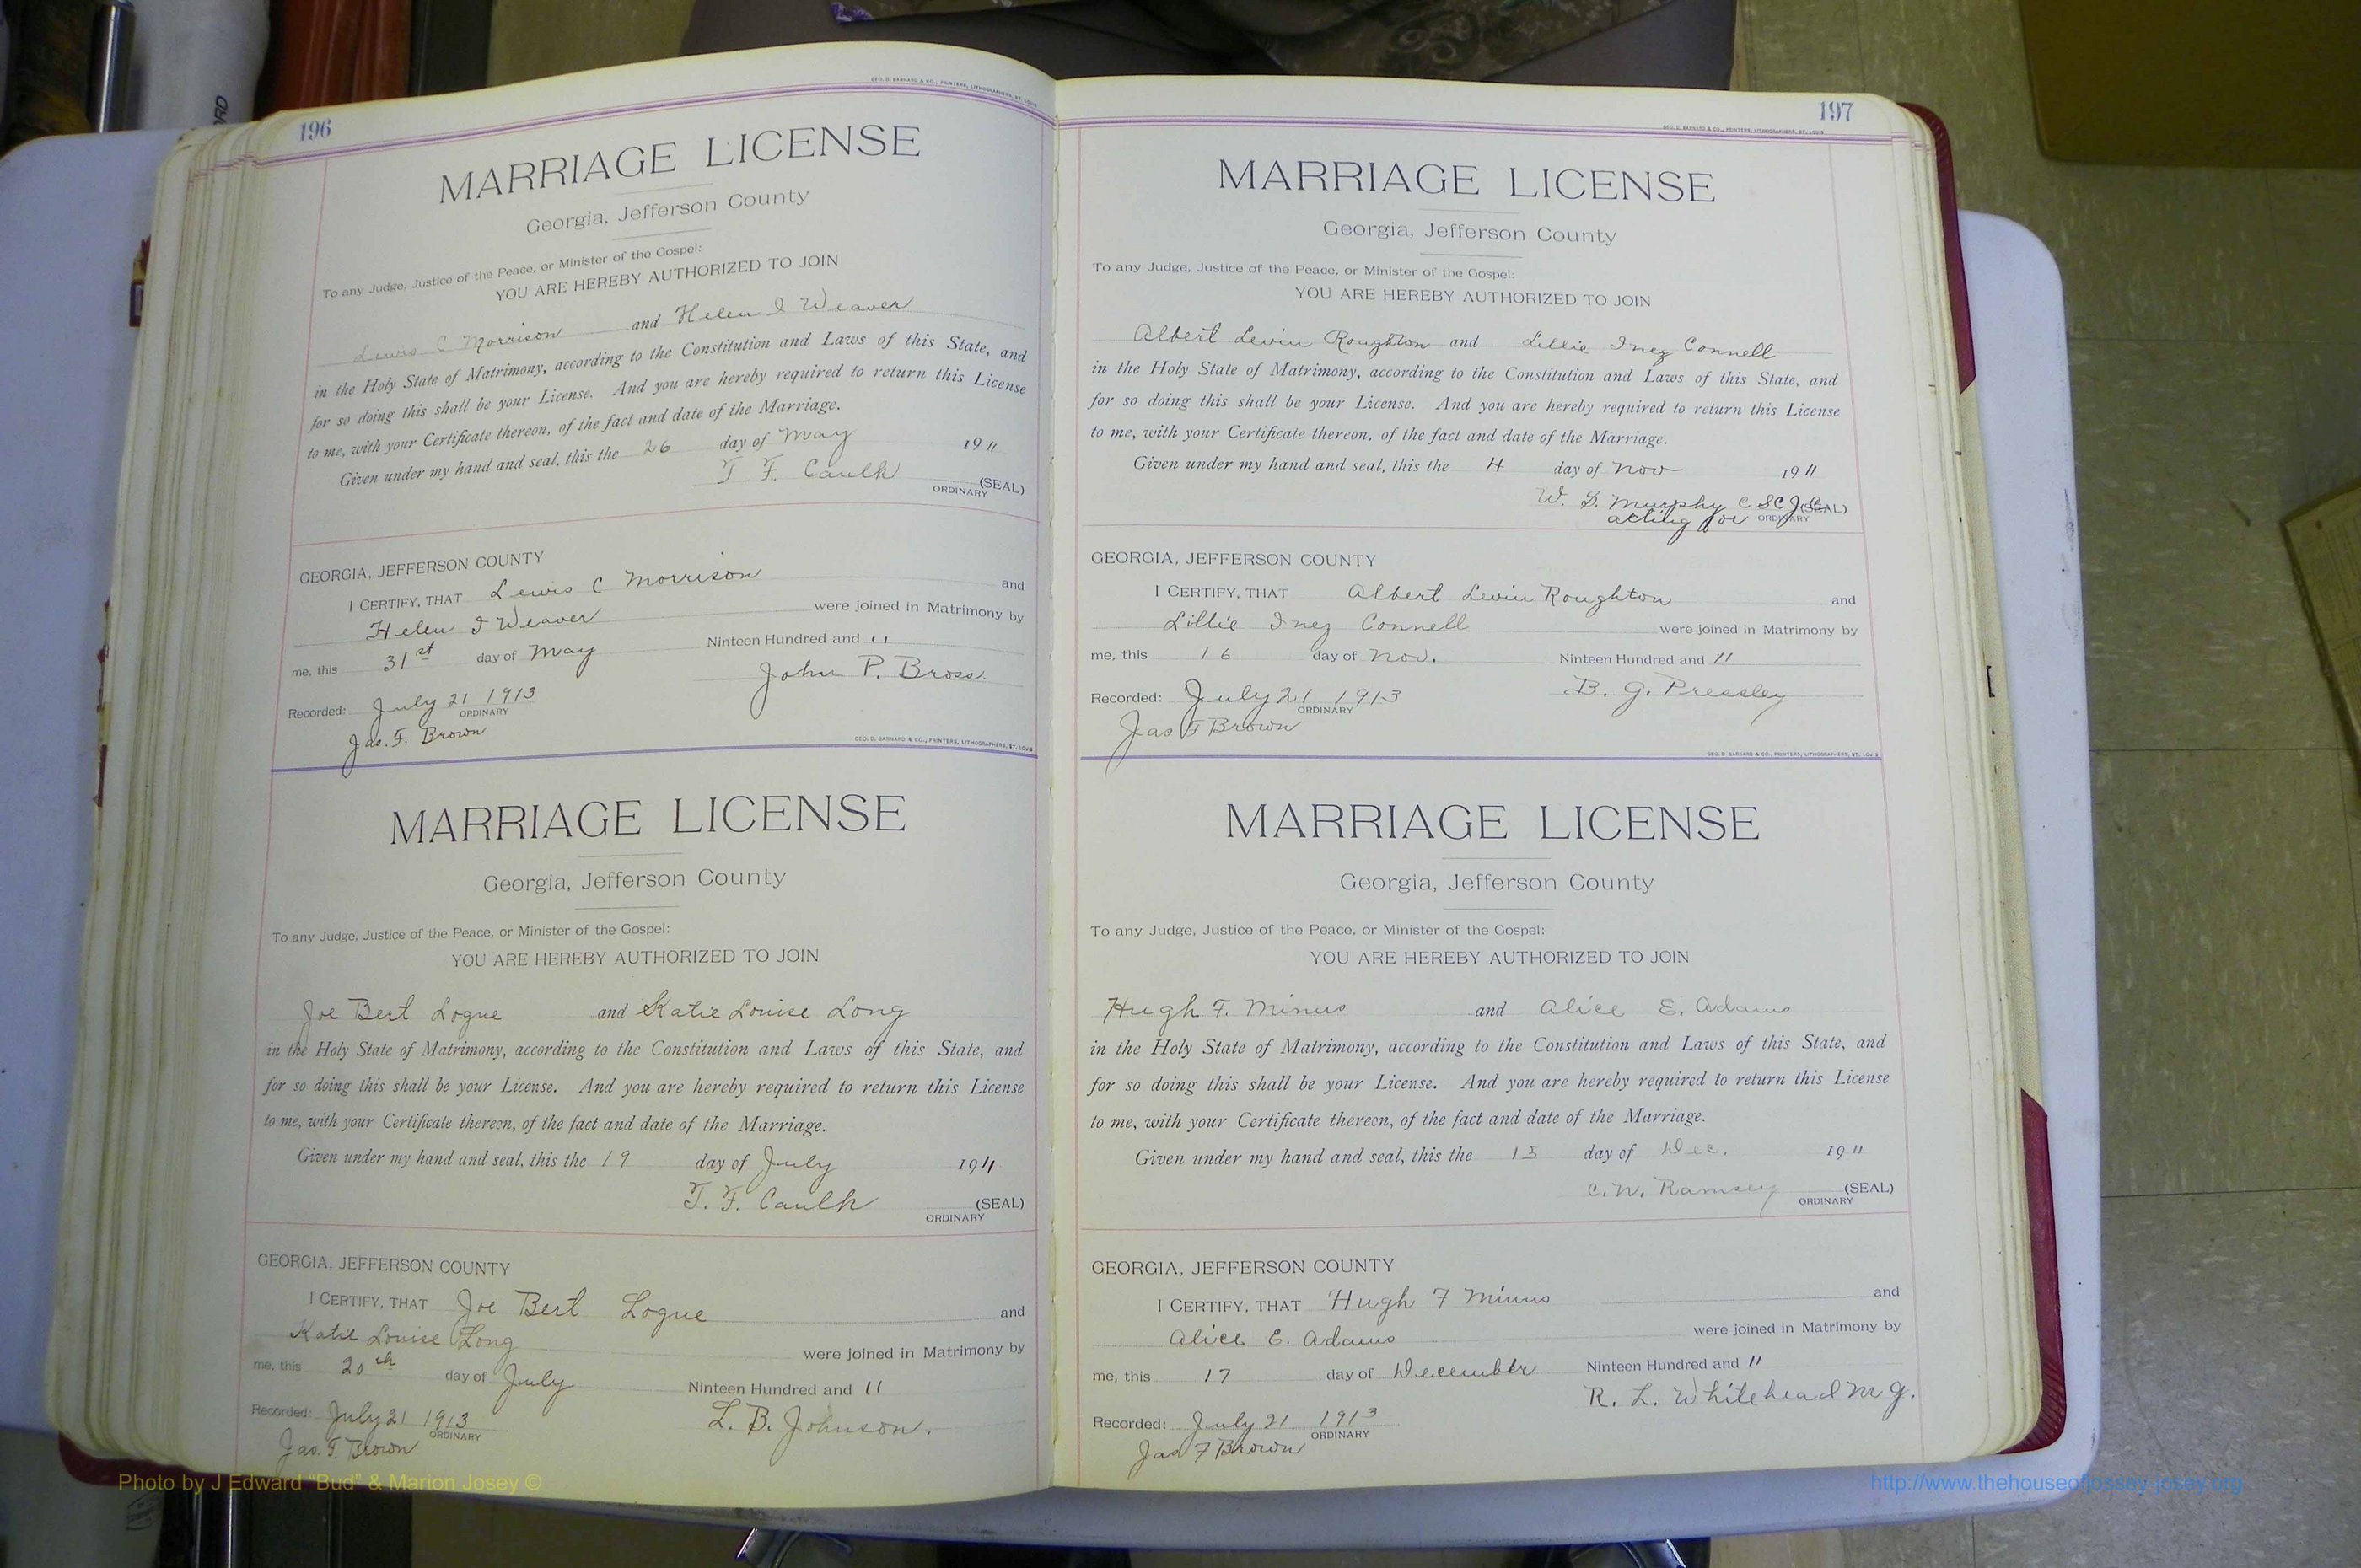 196
GEO. D. BARNARD & CO., PRINTERS, LITHOGRAPHERS, ST. LOUIS
MARRIAGE LICENSE
Georgia, Jefferson County
To any Judge, Justice of the Peace, or Minister of the Gospel:
YOU ARE HEREBY AUTHORIZED TO JOIN
Lewis C Morrison and Helen I Weaver
in the Holy State of Matrimony, according to the Constitution and Laws of this State, and
for so doing this shall be your License. And you are hereby required to return this License
to me, with your Certificate thereon, of the fact and date of the Marriage.
Given under my hand and seal, this the 26 day of May 1911
T. F. Caulk (SEAL)
ORDINARY
GEORGIA, JEFFERSON COUNTY
I CERTIFY, THAT Lewis C Morrison and
Helen I Weaver were joined in Matrimony by
me, this 31st day of May Ninteen Hundred and 11
John P. Bross.
Recorded: July 21 1913
ORDINARY
Jas. F. Brown
GEO. D. BARNARD & CO., PRINTERS, LITHOGRAPHERS, ST. LOUIS
MARRIAGE LICENSE
Georgia, Jefferson County
To any Judge, Justice of the Peace, or Minister of the Gospel:
YOU ARE HEREBY AUTHORIZED TO JOIN
Joe Bert Logue and Katie Louise Long
in the Holy State of Matrimony, according to the Constitution and Laws of this State, and
for so doing this shall be your License. And you are hereby required to return this License
to me, with your Certificate thereon, of the fact and date of the Marriage.
Given under my hand and seal, this the 19 day of July 1911
T. F. Caulk (SEAL)
ORDINARY
GEORGIA, JEFFERSON COUNTY
I CERTIFY, THAT Joe Bert Logue and
Katie Louise Long were joined in Matrimony by
me, this 20th day of July Ninteen Hundred and 11
L. B. Johnson.
Recorded: July 21 1913
ORDINARY
Jas. F. Brown
197
GEO. D. BARNARD & CO., PRINTERS, LITHOGRAPHERS, ST. LOUIS
MARRIAGE LICENSE
Georgia, Jefferson County
To any Judge, Justice of the Peace, or Minister of the Gospel:
YOU ARE HEREBY AUTHORIZED TO JOIN
Albert Levin Roughton and Lillie Inez Connell
in the Holy State of Matrimony, according to the Constitution and Laws of this State, and
for so doing this shall be your License. And you are hereby required to return this License
to me, with your Certificate thereon, of the fact and date of the Marriage.
Given under my hand and seal, this the 4 day of Nov 1911
W. S. Murphy C S C J C (SEAL)
acting for ORDINARY
GEORGIA, JEFFERSON COUNTY
I CERTIFY, THAT Albert Levin Roughton and
Lillie Inez Connell were joined in Matrimony by
me, this 16 day of Nov. Ninteen Hundred and 11
B. G. Pressley
Recorded: July 21 1913
ORDINARY
Jas F Brown
GEO. D. BARNARD & CO., PRINTERS, LITHOGRAPHERS, ST. LOUIS
MARRIAGE LICENSE
Georgia, Jefferson County
To any Judge, Justice of the Peace, or Minister of the Gospel:
YOU ARE HEREBY AUTHORIZED TO JOIN
Hugh F. Minus and Alice E. Adams
in the Holy State of Matrimony, according to the Constitution and Laws of this State, and
for so doing this shall be your License. And you are hereby required to return this License
to me, with your Certificate thereon, of the fact and date of the Marriage.
Given under my hand and seal, this the 15 day of Dec. 1911
C. W. Ramsey (SEAL)
ORDINARY
GEORGIA, JEFFERSON COUNTY
I CERTIFY, THAT Hugh F Minus and
Alice E. Adams were joined in Matrimony by
me, this 17 day of December Ninteen Hundred and 11
R. L. Whitehead M G.
Recorded: July 21 1913
ORDINARY
Jas F Brown
Photo by J Edward "Bud" & Marion Josey ©
http://www.thehouseofjossey-josey.org